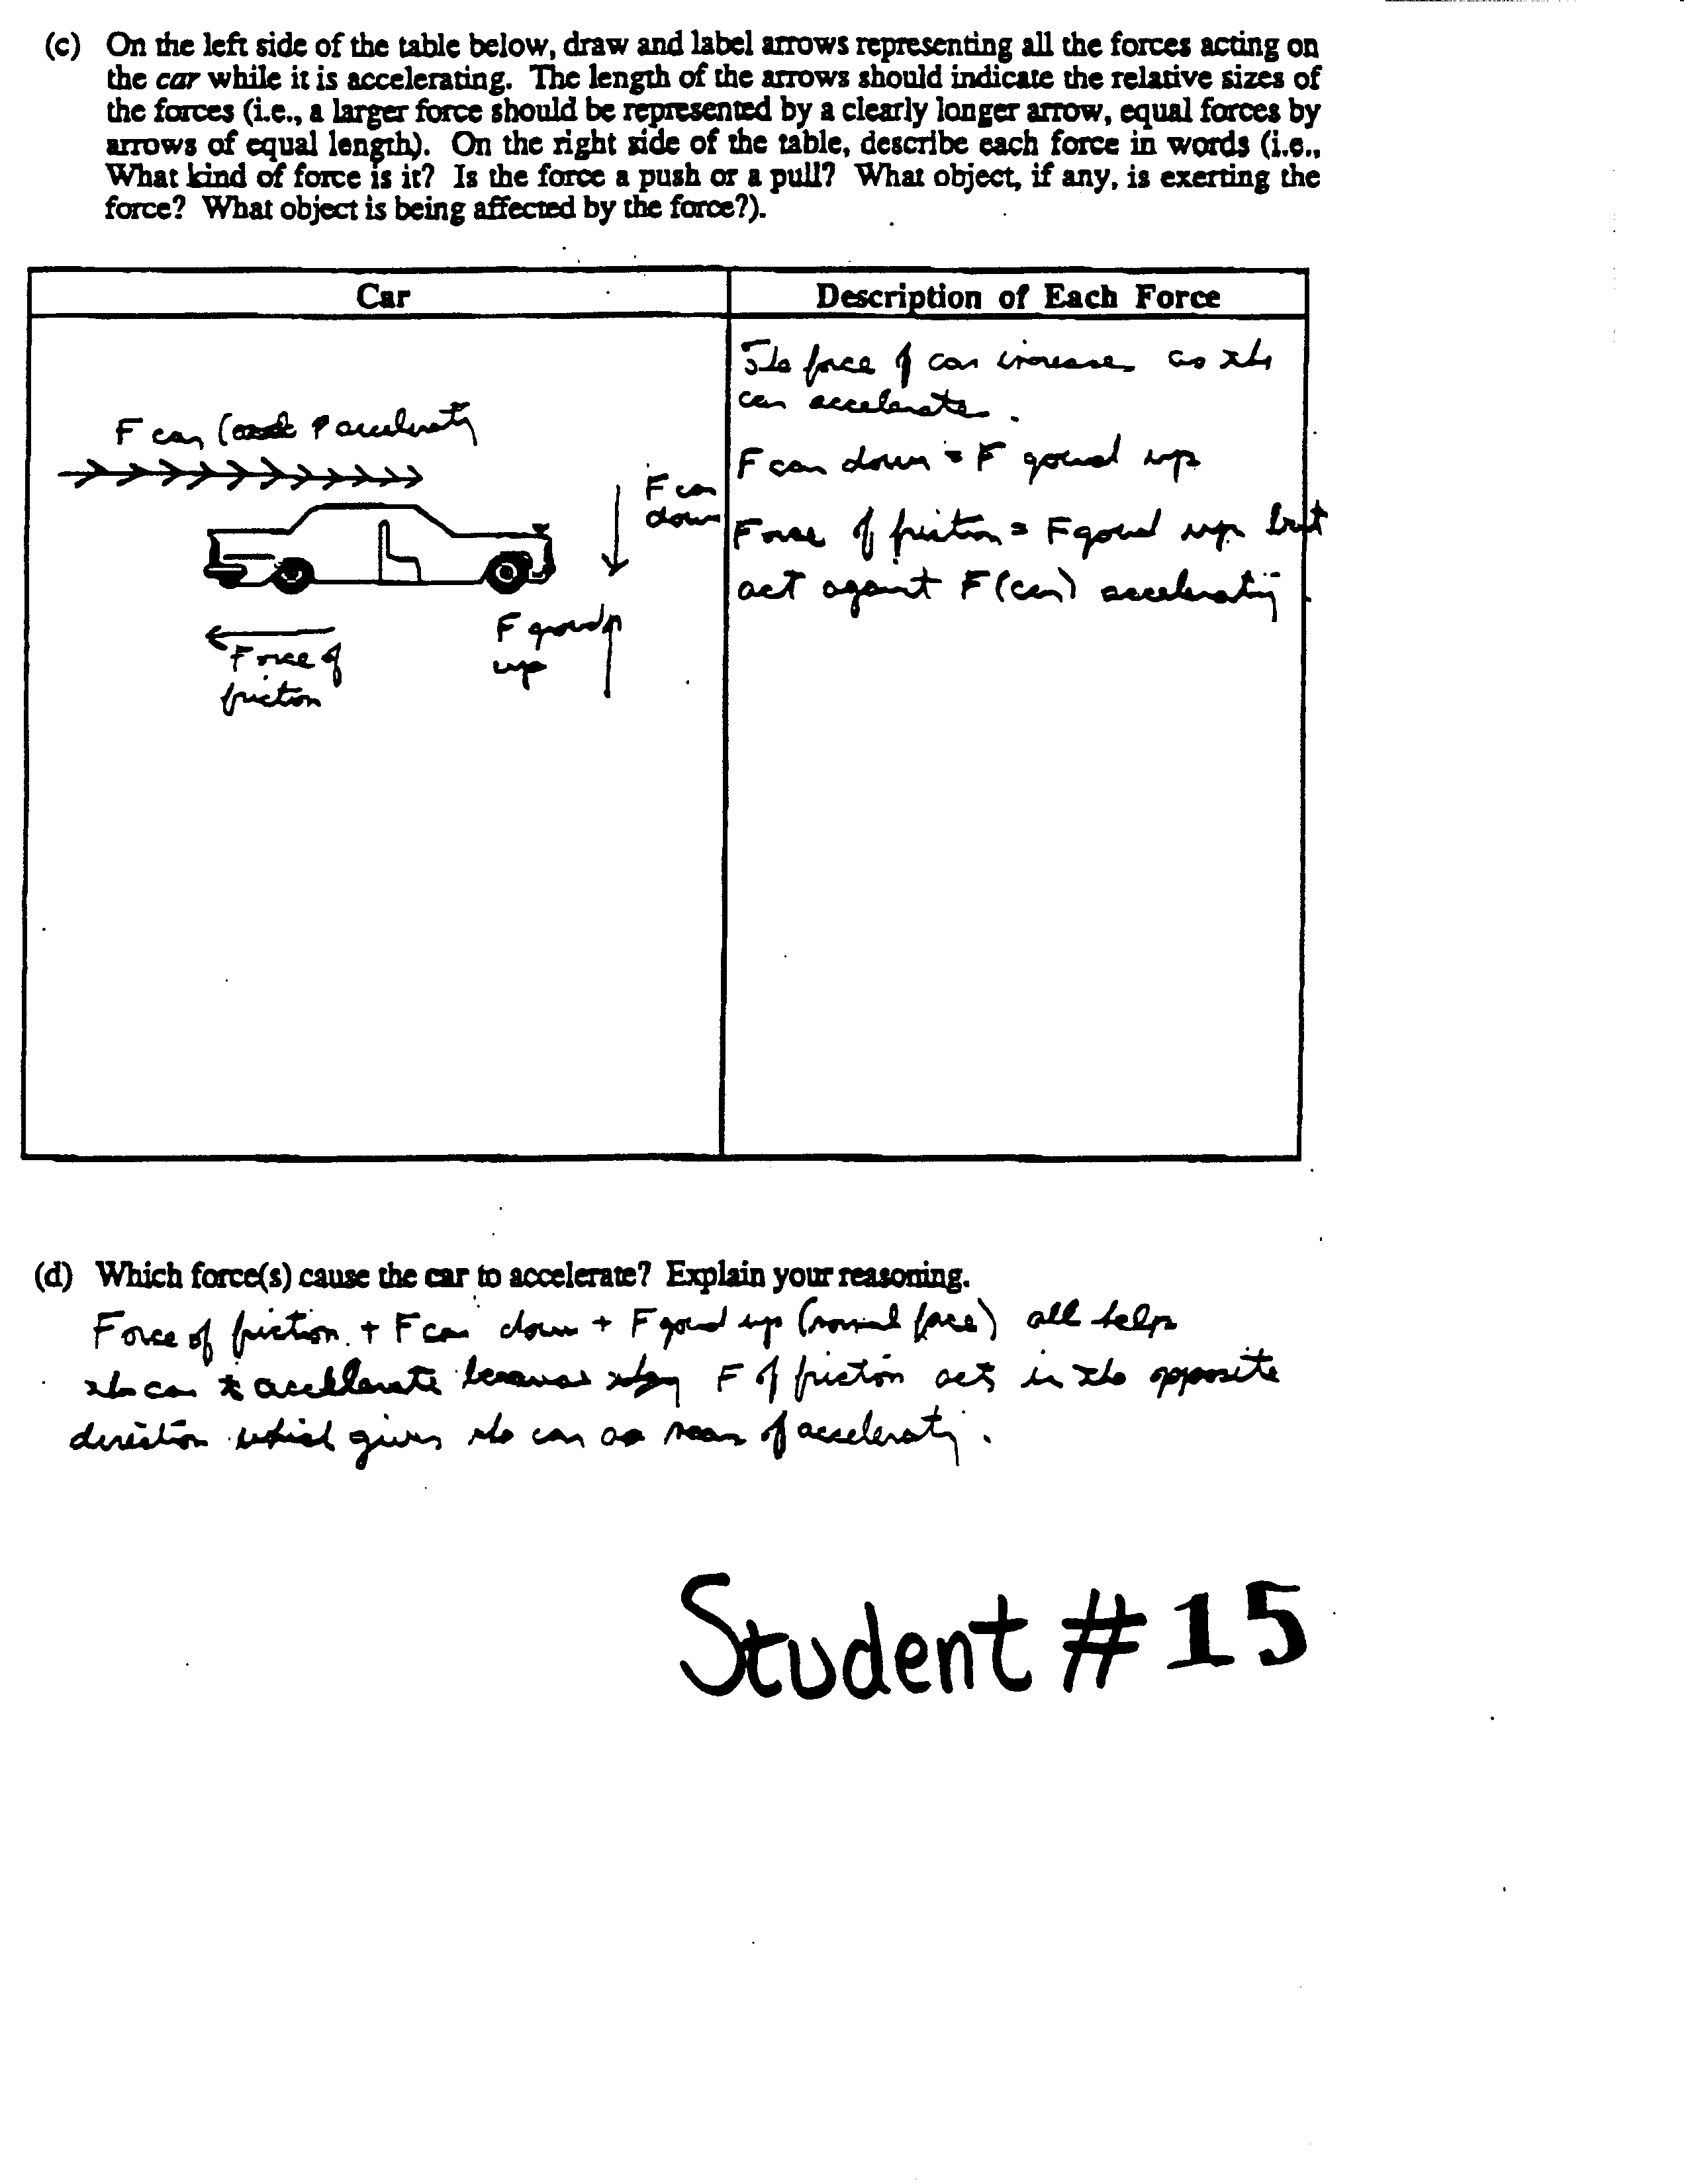 (c) On the left side of the table below, draw and label arrows representing all the forces acting on
the car while it is accelerating. The length of the arrows should indicate the relative sizes of
the forces (i.e., a larger force should be represented by a clearly longer arrow, equal forces by
arrows of equal length). On the right side of the table, describe each force in words (i.e.,
What kind of force is it? Is the force a push or a pull? What object, if any, is exerting the
force? What object is being affected by the force?).
Car
Description of Each Force
F car accelerating
F car
down
Force of
friction
F ground
up
The force of car increases as the
car accelerates.
F car down = F ground up
Force of friction = F ground up but
act against F (car) accelerating.
(d) Which force(s) cause the car to accelerate? Explain your reasoning.
Force of friction + F car down + F ground up (normal force) all help
the car to accellerate because F of friction acts in the opposite
direction which gives the car means of accelerating.
Student #15